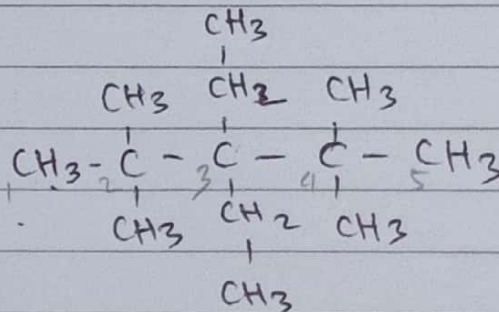 CH3
CH3 CH2 CH3
CH3 - C - C - C - CH3
1 2 3 4 5
CH3 CH2 CH3
CH3